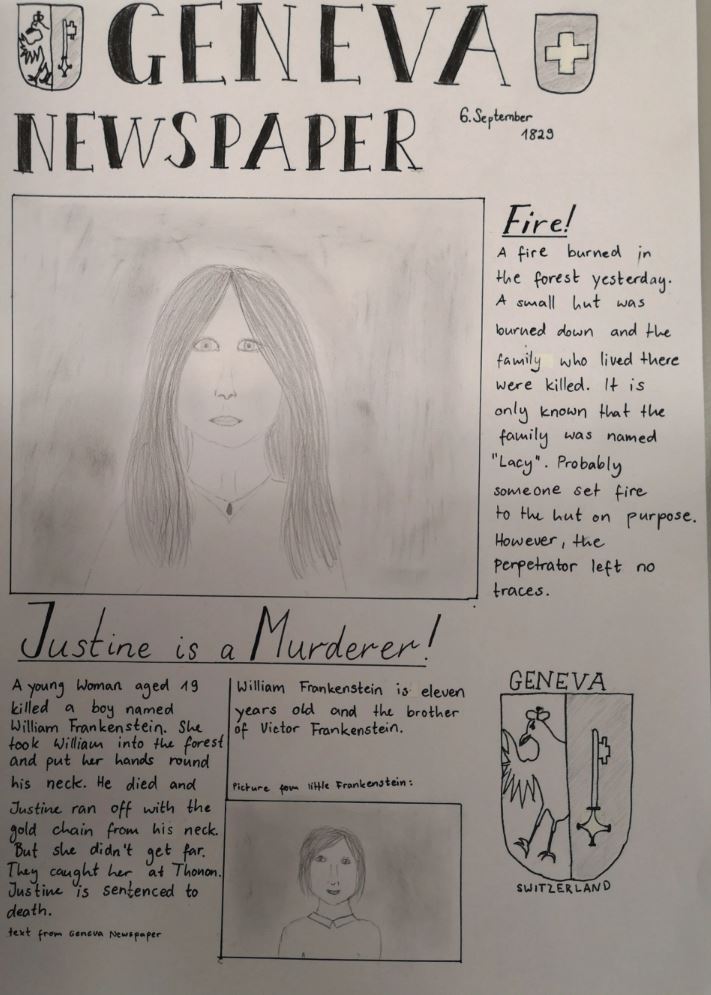 GENEVA
NEWSPAPER
6. September
1829
Fire!
A fire burned in
the forest yesterday.
A small hut was
burned down and the
family who lived there
were killed. It is
only known that the
family was named
"Lacy". Probably
someone set fire
to the hut on purpose.
However, the
perpetrator left no
traces.
Justine is a Murderer!
A young Woman aged 19
killed a boy named
William Frankenstein. She
took William into the forest
and put her hands round
his neck. He died and
Justine ran off with the
gold chain from his neck.
But she didn't get far.
They caught her at Thonon.
Justine is sentenced to
death.
text from Geneva Newspaper
William Frankenstein is eleven
years old and the brother
of Victor Frankenstein.
Picture fom little Frankenstein:
GENEVA
SWITZERLAND